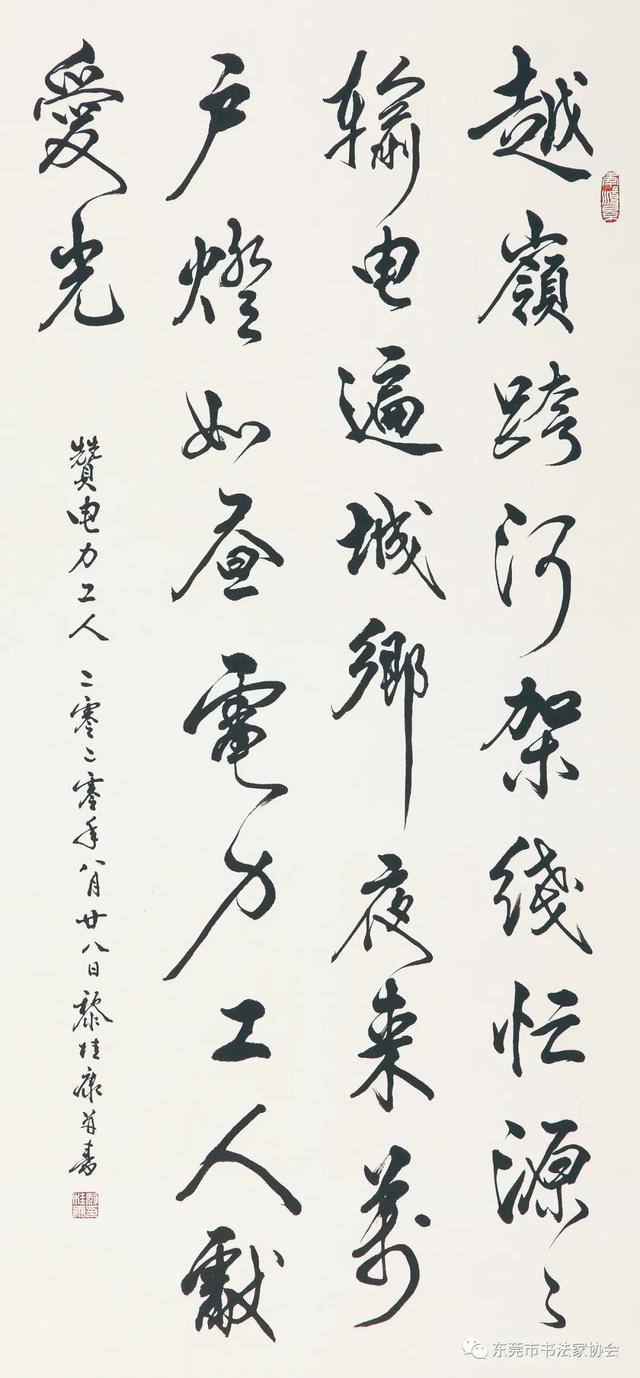 越嶺跨河架线忙源〻
輸电遍城鄉夜来萬
户燈如昼電力工人獻
愛光
赞电力工人 二零二零年八月廿八日 黎桂康并書
东莞市书法家协会